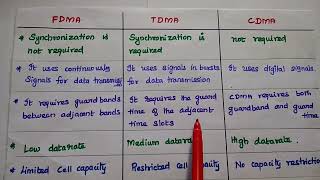 FDMA TDMA CDMA
* Synchronization is not required
Synchronization is required
not required
* It uses continuously Signals for data transmiss
It uses signals in bursts for data transmission
It uses digital signals
* It requires guard bands between adjacent bands
It requires the guard time of the adjacent time slots
CDMA requires both guardband and guard time
* Low datarate
Medium datarate
High datarate.
* Limited Cell capacity
Restricted cell capacity
No capacity restriction